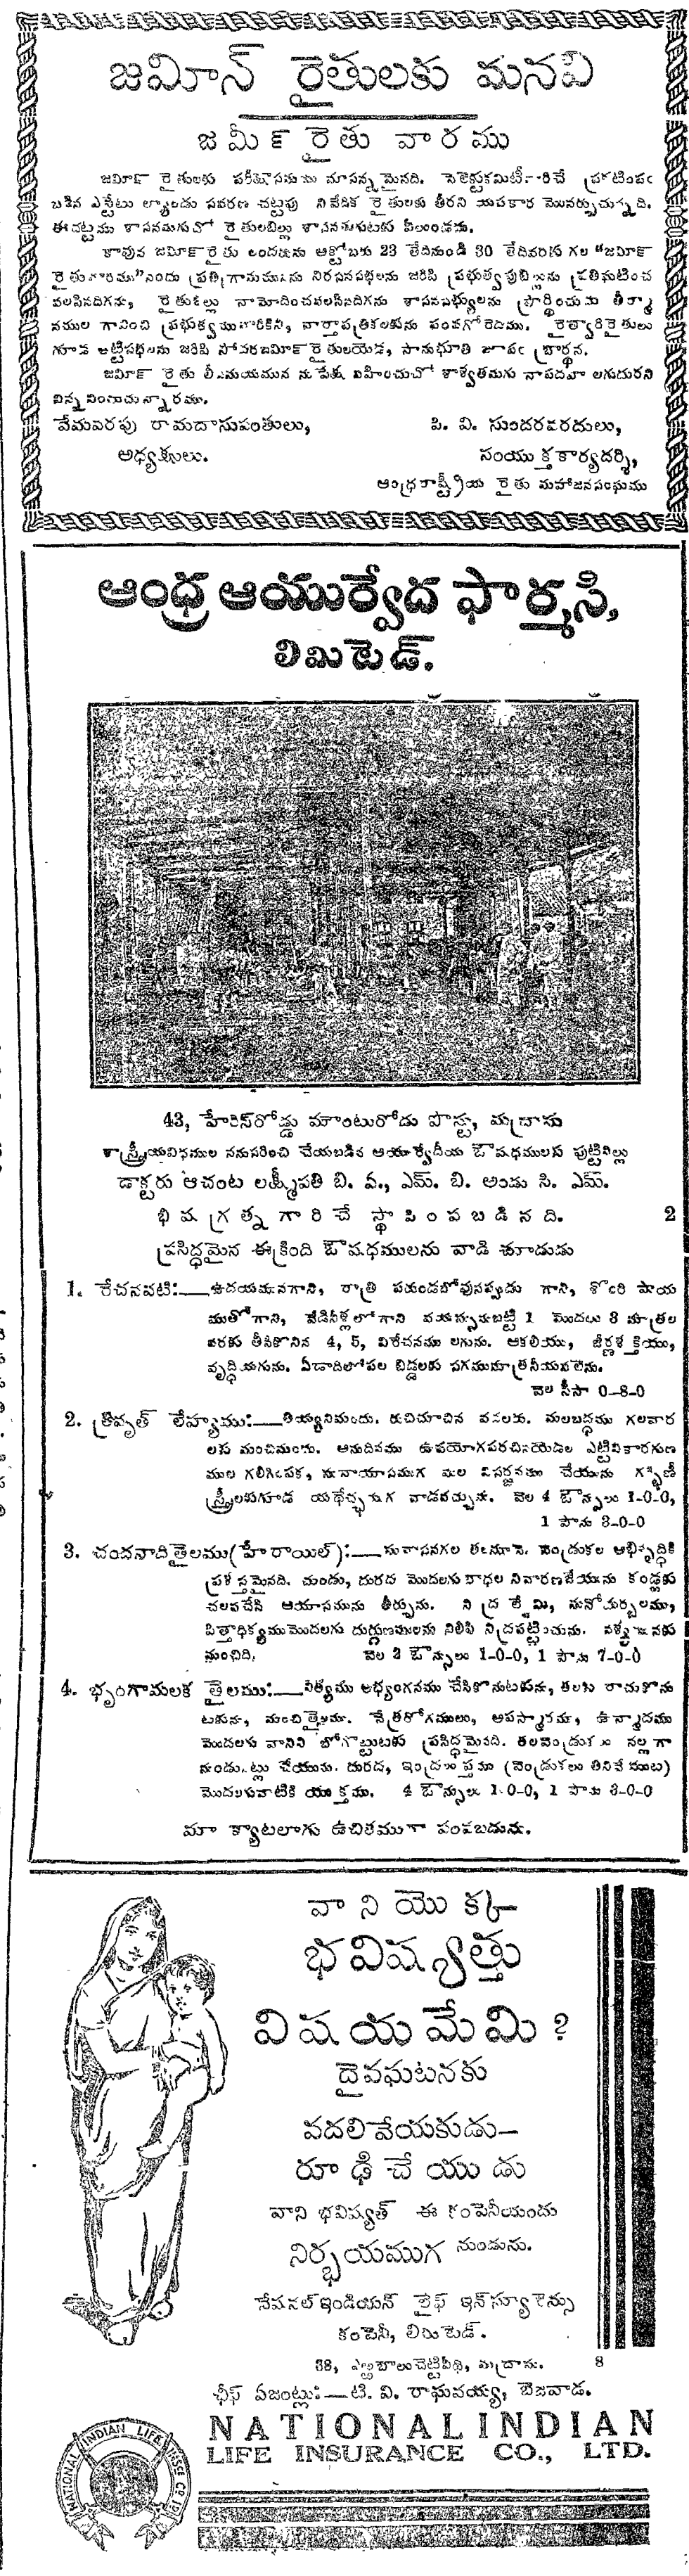 జమీన్ రైతులకు మనవి
జమీన్ రైతు వారము
జమీన్ రైతులకు పరీక్షాసమయ మాసన్నమైనది. సెలెక్టుకమిటీ వారిచే ప్రకటింపఁ
బడిన ఎస్టేటు ల్యాండు సవరణ చట్టపు నివేదిక రైతులకు తీరని యపకార మొనర్చుచున్నది.
ఈచట్టము శాసనమగుచో రైతులబిల్లు శాసనమగుటకు వీలుండదు.
కావున జమీన్ రైతు లందఱును ఆక్టోబరు 23 తేదినుండి 30 తేదివరకు గల "జమీన్
రైతువారము"నందు ప్రతిగ్రామమునను నిరసనసభలను జరిపి ప్రభుత్వపుబిల్లును ప్రతిఘటించ
వలసినదిగను, రైతుబిల్లు నామోదించవలసినదిగను శాసనసభ్యులను ప్రార్థించుచు తీర్మా
నముల గావించి ప్రభుత్వమువారికిని, వార్తాపత్రికలకును పంపగోరెదము. రైత్వారిరైతులు
గూడ అట్టిసభలను జరిపి సోదరజమీన్ రైతులయెడ, సానుభూతి జూపఁ బ్రార్థన.
జమీన్ రైతు లీసమయమున నుపేక్ష వహించుచో శాశ్వతమగు నాపదపా లగుదురని
విన్నవించుచున్నారము.
వేమవరపు రామదాసుపంతులు,
పి. వి. సుందరవరదులు,
అధ్యక్షులు.
సంయుక్తకార్యదర్శి,
ఆంధ్రరాష్ట్రీయ రైతు మహాజనసంఘము
ఆంధ్ర ఆయుర్వేద ఫార్మసి,
లిమిటెడ్.
43, హేరిస్‌రోడ్డు మౌంటురోడు పోస్టు, మద్రాసు
శాస్త్రీయవిధముల ననుసరించి చేయబడిన ఆయుర్వేదీయ ఔషధములకు పుట్టినిల్లు
డాక్టరు ఆచంట లక్ష్మీపతి బి. ఏ., ఎమ్. బి. అండు సి. ఎమ్.
భిషగ్రత్న గారిచే స్థాపింపబడినది. 2
ప్రసిద్ధమైన ఈక్రింది ఔషధములను వాడి చూడుడు
1. రేచనవటి:—ఉదయమునగాని, రాత్రి పరుండబోవునప్పుడు గాని, శొంఠి పాయ
ముతోగాని, వేడినీళ్లలోగాని వయస్సునుబట్టి 1 మొదలు 3 మాత్రల
వరకు తీసికొనిన 4, 5, విరేచనము లగును. ఆకలియు, జీర్ణశక్తియు,
వృద్ధియగును. ఏడాదిలోపల బిడ్డలకు సగముమాత్రనీయవలెను.
వెల సీసా 0-8-0
2. త్రివృత్ లేహ్యము:—తియ్యనిమందు. రుచిచూచిన వదలరు. మలబద్ధము గలవార
లకు మంచిమందు. అనుదినము ఉపయోగపరచినయెడల ఎట్టివికారగుణ
ముల గలిగింపక, సునాయాసముగ మల విసర్జనము చేయును గర్భిణీ
స్త్రీలకుగూడ యథేచ్ఛముగ వాడవచ్చును. వెల 4 ఔన్సులు 1-0-0,
1 పౌను 3-0-0
3. చందనాదితైలము(హేరాయిల్):—సువాసనగల ఈనూనె వెండ్రుకల అభివృద్ధికి
ప్రశస్తమైనది. చుండు, దురద మొదలగు బాధల నివారణజేయును కండ్లకు
చలవచేసి ఆయాసమును తీర్చును. నిద్ర లేమి, మనోదుర్బలము,
పిత్తాధిక్యముమొదలగు దుర్గుణములను నిలిపి నిద్రపట్టించును.
మంచిది. వెల 2 ఔన్సులు 1-0-0, 1 పౌను 7-0-0
4. భృంగామలక తైలము:—నిత్యము అభ్యంగనము చేసికొనుటకును, తలకు రాచుకొను
టకును, మంచితైలము. నేత్రరోగములు, అపస్మారము, ఉన్మాదము
మొదలగు వానిని బోగొట్టుటకు ప్రసిద్ధమైనది. తలవెండ్రుకలు నల్లగా
నుండునట్లు చేయును. దురద, ఇంద్రలుప్తము (వెండ్రుకలు తినివేయుట)
మొదలగువాటికి యుక్తము. 4 ఔన్సులు 1-0-0, 1 పౌను 3-0-0
మా క్యాటలాగు ఉచితముగా పంపబడును.
వానియొక్క—
భవిష్యత్తు
విషయమేమి?
దైవఘటనకు
వదలివేయకుడు—
రూఢిచేయుడు
వాని భవిష్యత్ ఈ కంపెనీయందు
నిర్భయముగ నుండును.
నేషనల్ ఇండియన్ లైఫ్ ఇన్‌స్యూరెన్సు
కంపెనీ, లిమిటెడ్.
38, ఎఱ్ఱబాలుచెట్టివీధి, మద్రాసు. 8
ఛీఫ్ ఏజంట్లు:—టి. వి. రాఘవయ్య, బెజవాడ.
NATIONAL INDIAN
LIFE INSURANCE CO., LTD.
NATIONAL INDIAN LIFE INSCE CO LTD